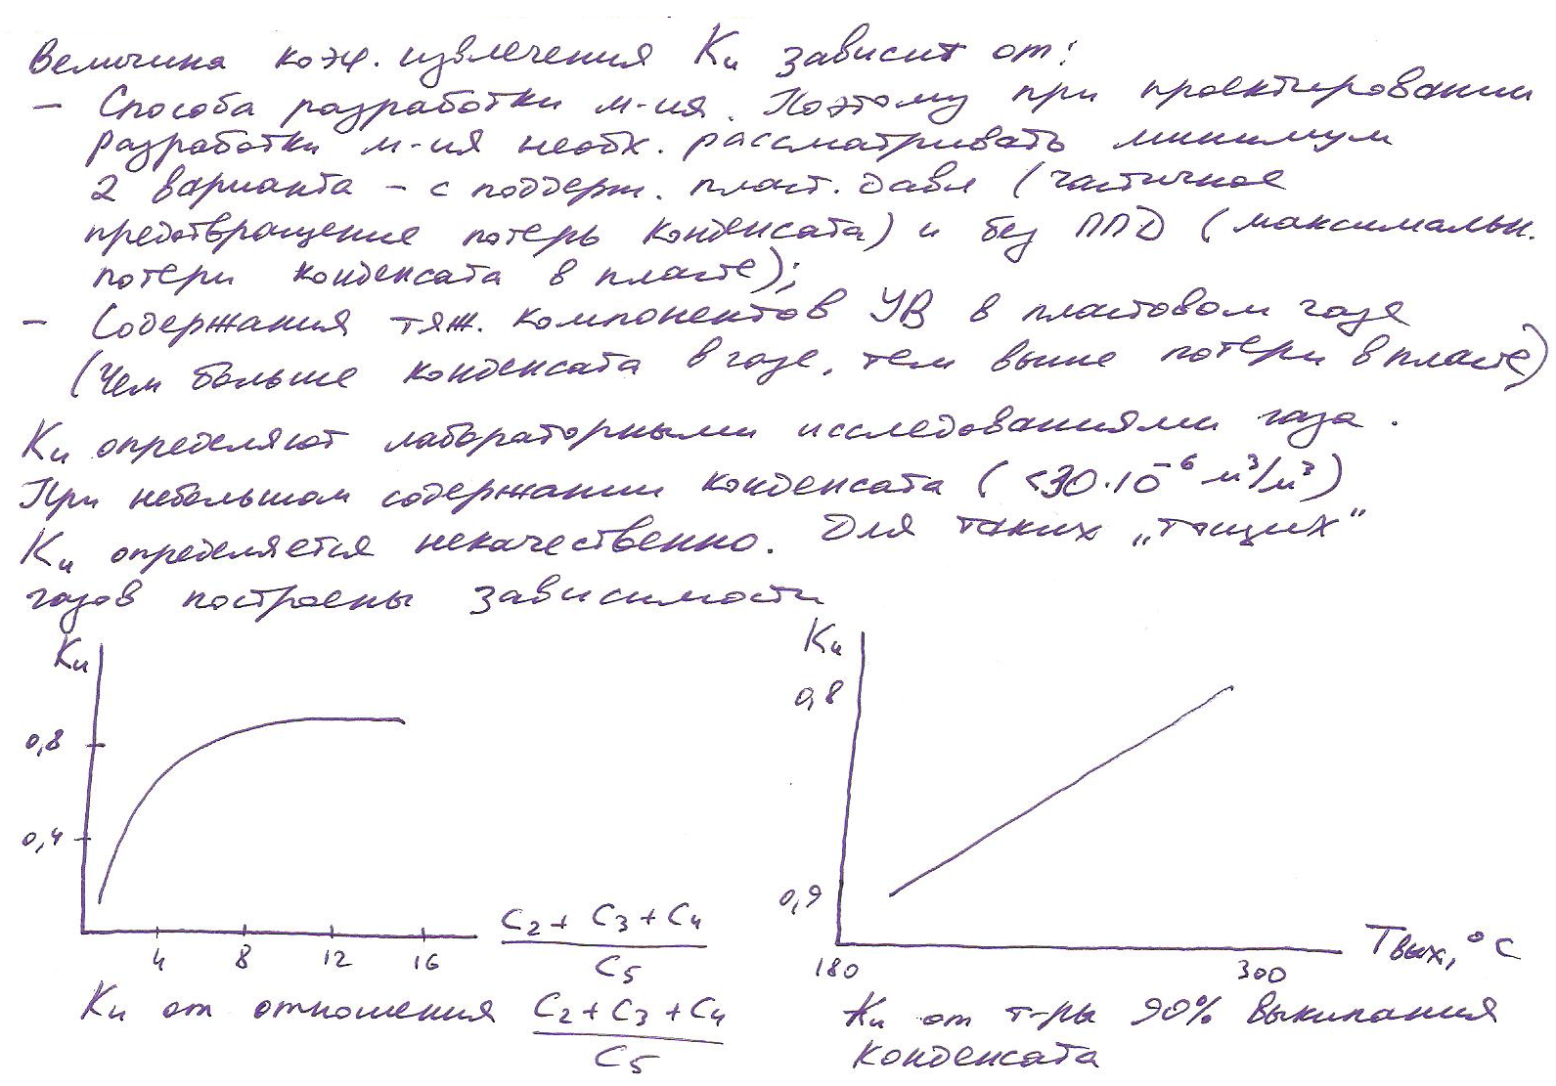 Величина коэф. извлечения Kи зависит от:
- Способа разработки м-ия. Поэтому при проектировании
разработки м-ия необх. рассматривать минимум
2 варианта - с поддерж. пласт. давл (частичное
предотвращение потерь конденсата) и без ППД (максимальн.
потери конденсата в пласте);
- Содержания тяж. компонентов УВ в пластовом газе
(Чем больше конденсата в газе, тем выше потери в пласте)
Kи определяют лабораторными исследованиями газа.
При небольшом содержании конденсата (<30·10⁻⁶ м³/м³)
Kи определяется некачественно. Для таких „тощих"
газов построены зависимости
Kи
0,8
0,4
4 8 12 16
C₂ + C₃ + C₄
C₅
Kи от отношения C₂ + C₃ + C₄
C₅
Kи
0,8
0,9
180 300
Tвых, °C
Kи от т-ры 90% выкипания
конденсата